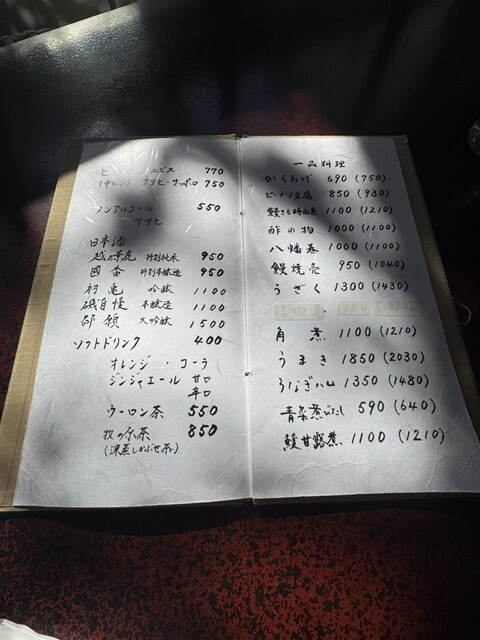 エビス 770
(中ビン) アサヒ・サッポロ 750
ノンアルコール 550
アサヒ
日本酒
特別純米 950
國香 特別本醸造 950
初亀 吟醸 1100
磯自慢 本醸造 1100
大吟醸 1500
ソフトドリンク 400
オレンジ・コーラ
ジンジャエール 甘口
辛口
ウーロン茶 550
牧の原茶 850
(深蒸しかぶせ茶)
一品料理
からあげ 690 (750)
ピーナツ豆腐 850 (930)
1100 (1210)
酢の物 1000 (1100)
八幡巻 1000 (1100)
鰻焼売 950 (1040)
うざく 1300 (1430)
角煮 1100 (1210)
うまき 1850 (2030)
うなぎハム 1350 (1480)
青菜煮びたし 590 (640)
鰻甘露煮 1100 (1210)